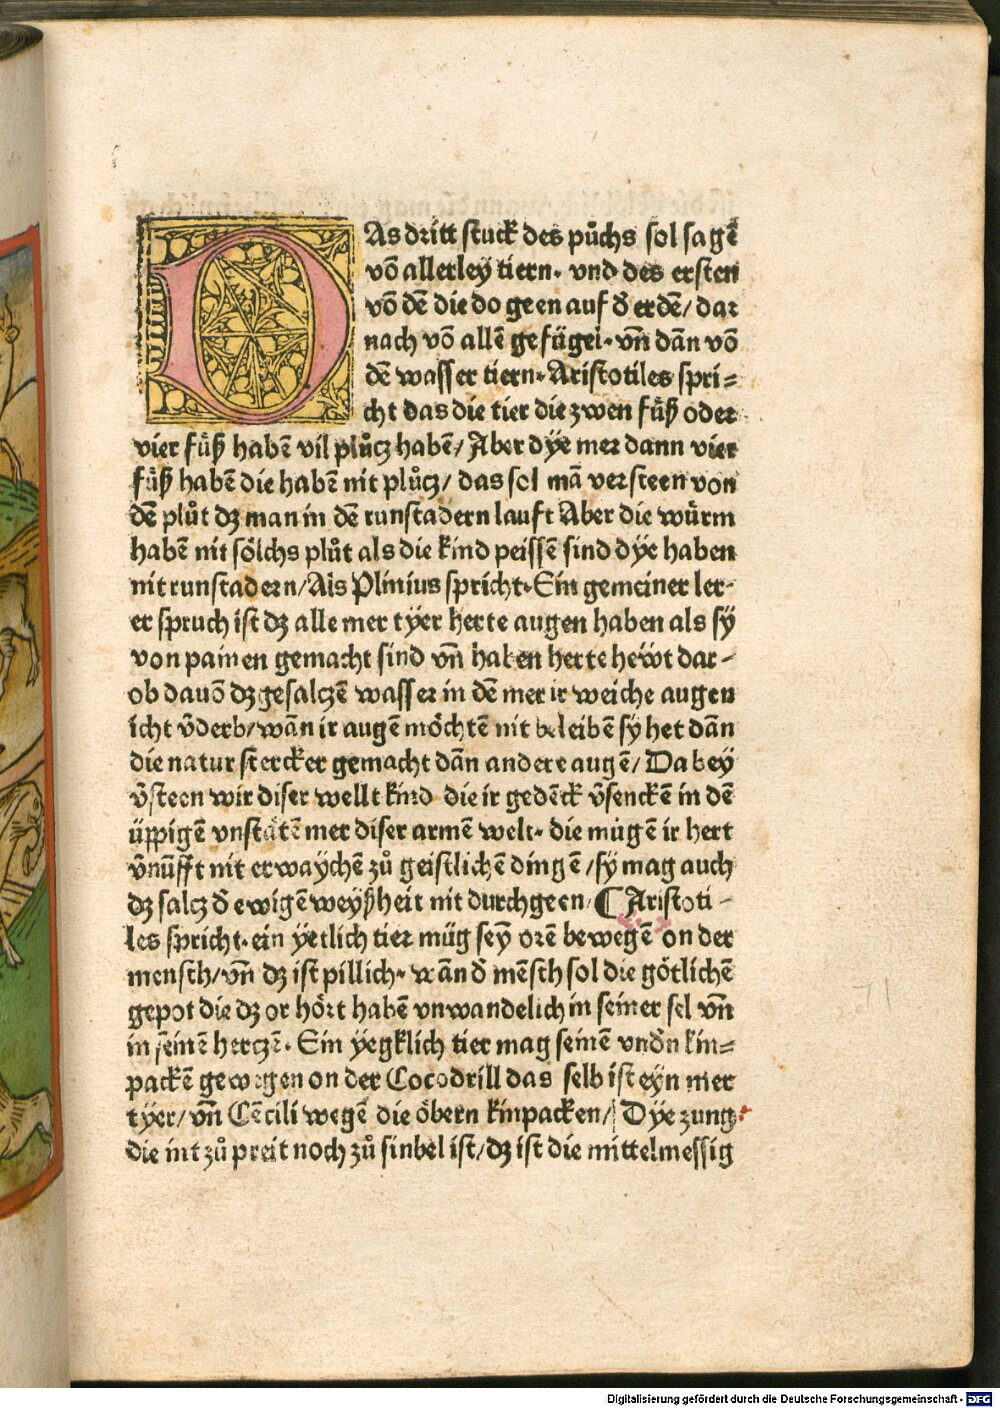 DAs dritt stuck des půchs sol sagē
võ allerley tiern. vnd des ersten
võ dē die do geen auf d̄ erdē/ dar
nach võ allē gefügel. vñ dãn võ
dē wasser tiern. Aristotiles spri=
cht das die tier die zwen füß oder
vier füß habē vil plůcz habē/ Aber dÿe mer dann vier
füß habē die habē nit plůcz/ das sol mã versteen von
dē plůt dz man in dē runstadern lauft Aber die würm
habē nit sölchs plůt als die kind peissē sind dÿe haben
nit runstadern/ Als Plinius spricht. Ein gemeiner ler-
er spruch ist dz alle mer tyer herte augen haben als sÿ
von painen gemacht sind vñ haben herte hewt dar-
ob dauõ dz gesalczē wasser in dē mer ir weiche augen
icht v̄derb/ wãn ir augē möchtē nit beleibē sÿ het dãn
die natur stercker gemacht dãn andere augē/ Da bey
v̄steen wir diser wellt kind die ir gedēck v̄senckē in dē
üppigē vnstätē mer diser armē welt. die mügē ir hert
v̄nüfft nit erwaÿchē zů geistlichē dingē/ sÿ mag auch
dz salcz d̄ ewigē weyßheit nit durchgeen. ¶ Aristoti-
les spricht. ein ÿetlich tier müg seÿ orē bewegē on der
mensch/ vñ dz ist pillich. wãn d̄ mēsch sol die götlichē
gepot die dz or hört habē vnwandelich in seiner sel vñ
in seinē herczē. Ein ÿegklich tier mag seinē vndn̄ kin=
packē gewegen on der Cocodrill das selb ist eÿn mer
tyer/ vñ Cēcili wegē die öbern kinpacken/ Dÿe zung
die nit zů preit noch zů sinbel ist/ dz ist die mittelmessig
71
Digitalisierung gefördert durch die Deutsche Forschungsgemeinschaft - DFG